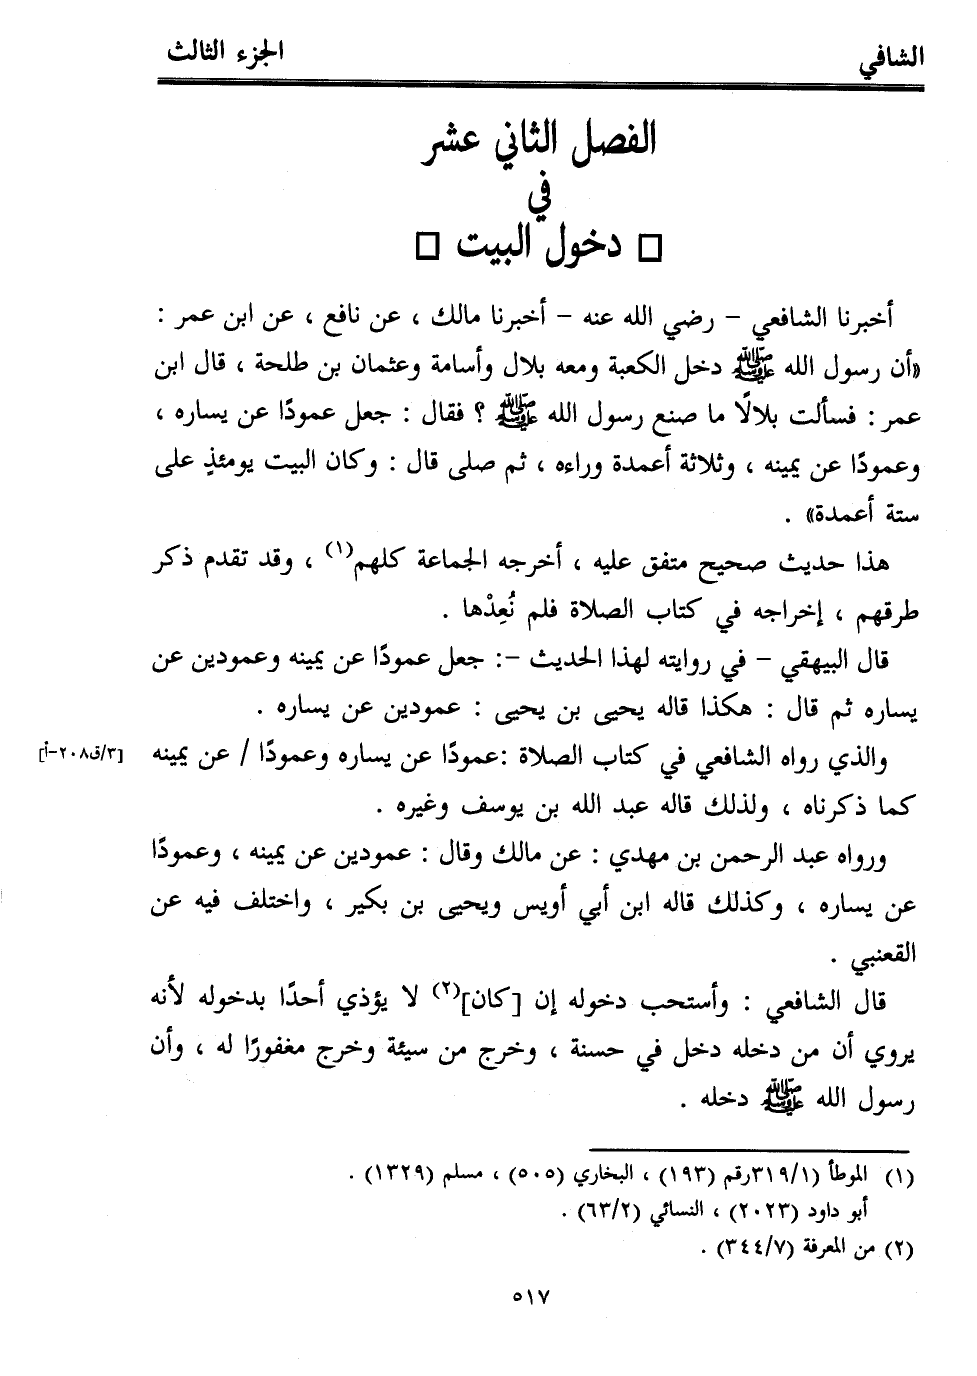 الشافي
الجزء الثالث
الفصل الثاني عشر
في
□ دخول البيت □
أخبرنا الشافعي – رضي الله عنه – أخبرنا مالك ، عن نافع ، عن ابن عمر :
«أن رسول الله ﷺ دخل الكعبة ومعه بلال وأسامة وعثمان بن طلحة ، قال ابن
عمر : فسألت بلالًا ما صنع رسول الله ﷺ ؟ فقال : جعل عمودًا عن يساره ،
وعمودًا عن يمينه ، وثلاثة أعمدة وراءه ، ثم صلى قال : وكان البيت يومئذٍ على
ستة أعمدة» .
هذا حديث صحيح متفق عليه ، أخرجه الجماعة كلهم(١) ، وقد تقدم ذكر
طرقهم ، إخراجه في كتاب الصلاة فلم نُعِدْها .
قال البيهقي – في روايته لهذا الحديث –: جعل عمودًا عن يمينه وعمودين عن
يساره ثم قال : هكذا قاله يحيى بن يحيى : عمودين عن يساره .
والذي رواه الشافعي في كتاب الصلاة :عمودًا عن يساره وعمودًا / عن يمينه [٣/ق٢٠٨-أ]
كما ذكرناه ، ولذلك قاله عبد الله بن يوسف وغيره .
ورواه عبد الرحمن بن مهدي : عن مالك وقال : عمودين عن يمينه ، وعمودًا
عن يساره ، وكذلك قاله ابن أبي أويس ويحيى بن بكير ، واختلف فيه عن
القعنبي .
قال الشافعي : وأستحب دخوله إن [كان](٢) لا يؤذي أحدًا بدخوله لأنه
يروي أن من دخله دخل في حسنة ، وخرج من سيئة وخرج مغفورًا له ، وأن
رسول الله ﷺ دخله .
(١) الموطأ (٣١٩/١رقم (١٩٣) ، البخاري (٥٠٥) ، مسلم (١٣٢٩) .
أبو داود (٢٠٢٣) ، النسائي (٦٣/٢) .
(٢) من المعرفة (٣٤٤/٧) .
٥١٧